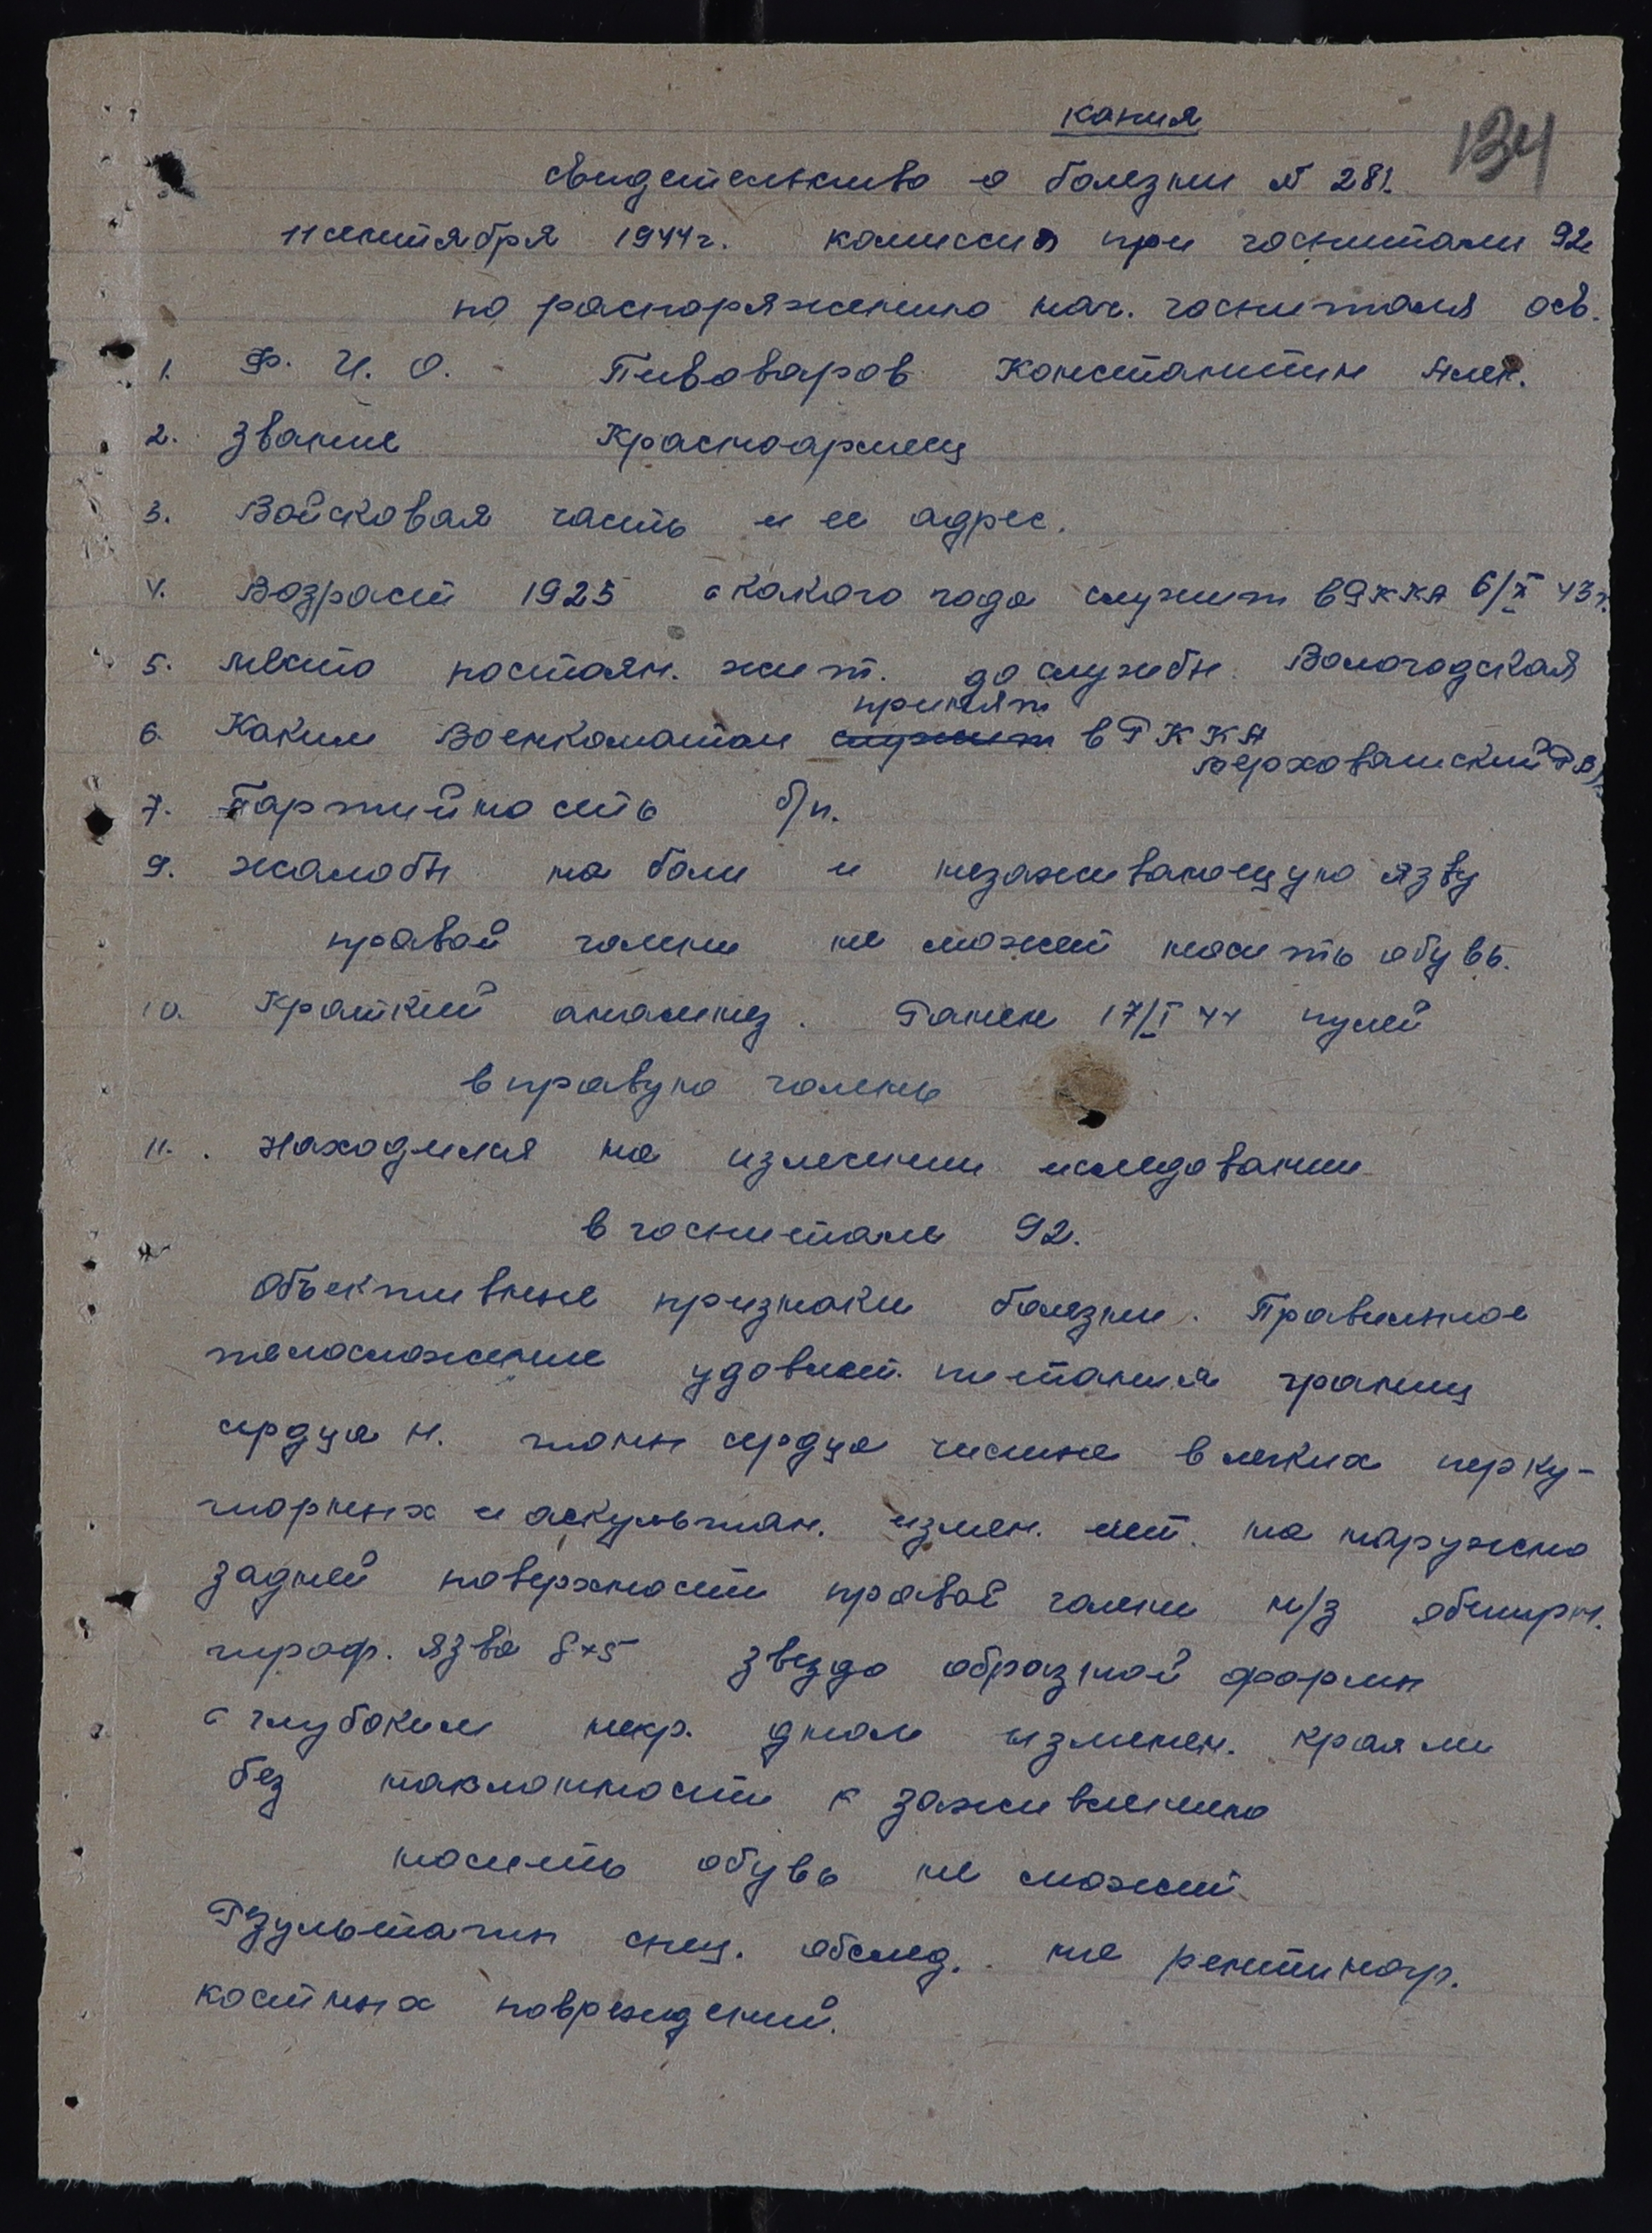 копия
134
свидетельство о болезни № 281.
11 сентября 1944г. комиссия при госпитали 92
по распоряжению нач. госпиталя осв.
1. Ф. И. О. - Пивоваров Константин Алек.
2. Звание Красноармеец
3. Войсковая часть и ее адрес.
4. Возраст 1925 с какого года служит в РККА 6/X 43г.
5. место постоян. жит. до службы Вологодская
принят
6. Каким Военкоматом служит в РККА
Верховажский РВК
7. Партийность б/п.
9. жалобы на боли и незаживающую язву
правой голени не может носить обувь.
10. Краткий анамнез. Ранен 17/I 44 пулей
в правую голень
11. Находился на излечении иследовании
в госпитале 92.
Объективные признаки болезни. Правильное
телосложение удовлет. питания границ
сердца н. тоны сердца чистые в легких перку-
торных и аскультан. измен. нет. на наружно
задней поверхности правой голени н/з обширн.
троф. язва 8×5 звездо образной формы
с глубоким некр. дном изменен. краями
без наклонности к заживлению
носить обувь не может
Результаты спец. обслед. не рентиногр.
костных повреждений.